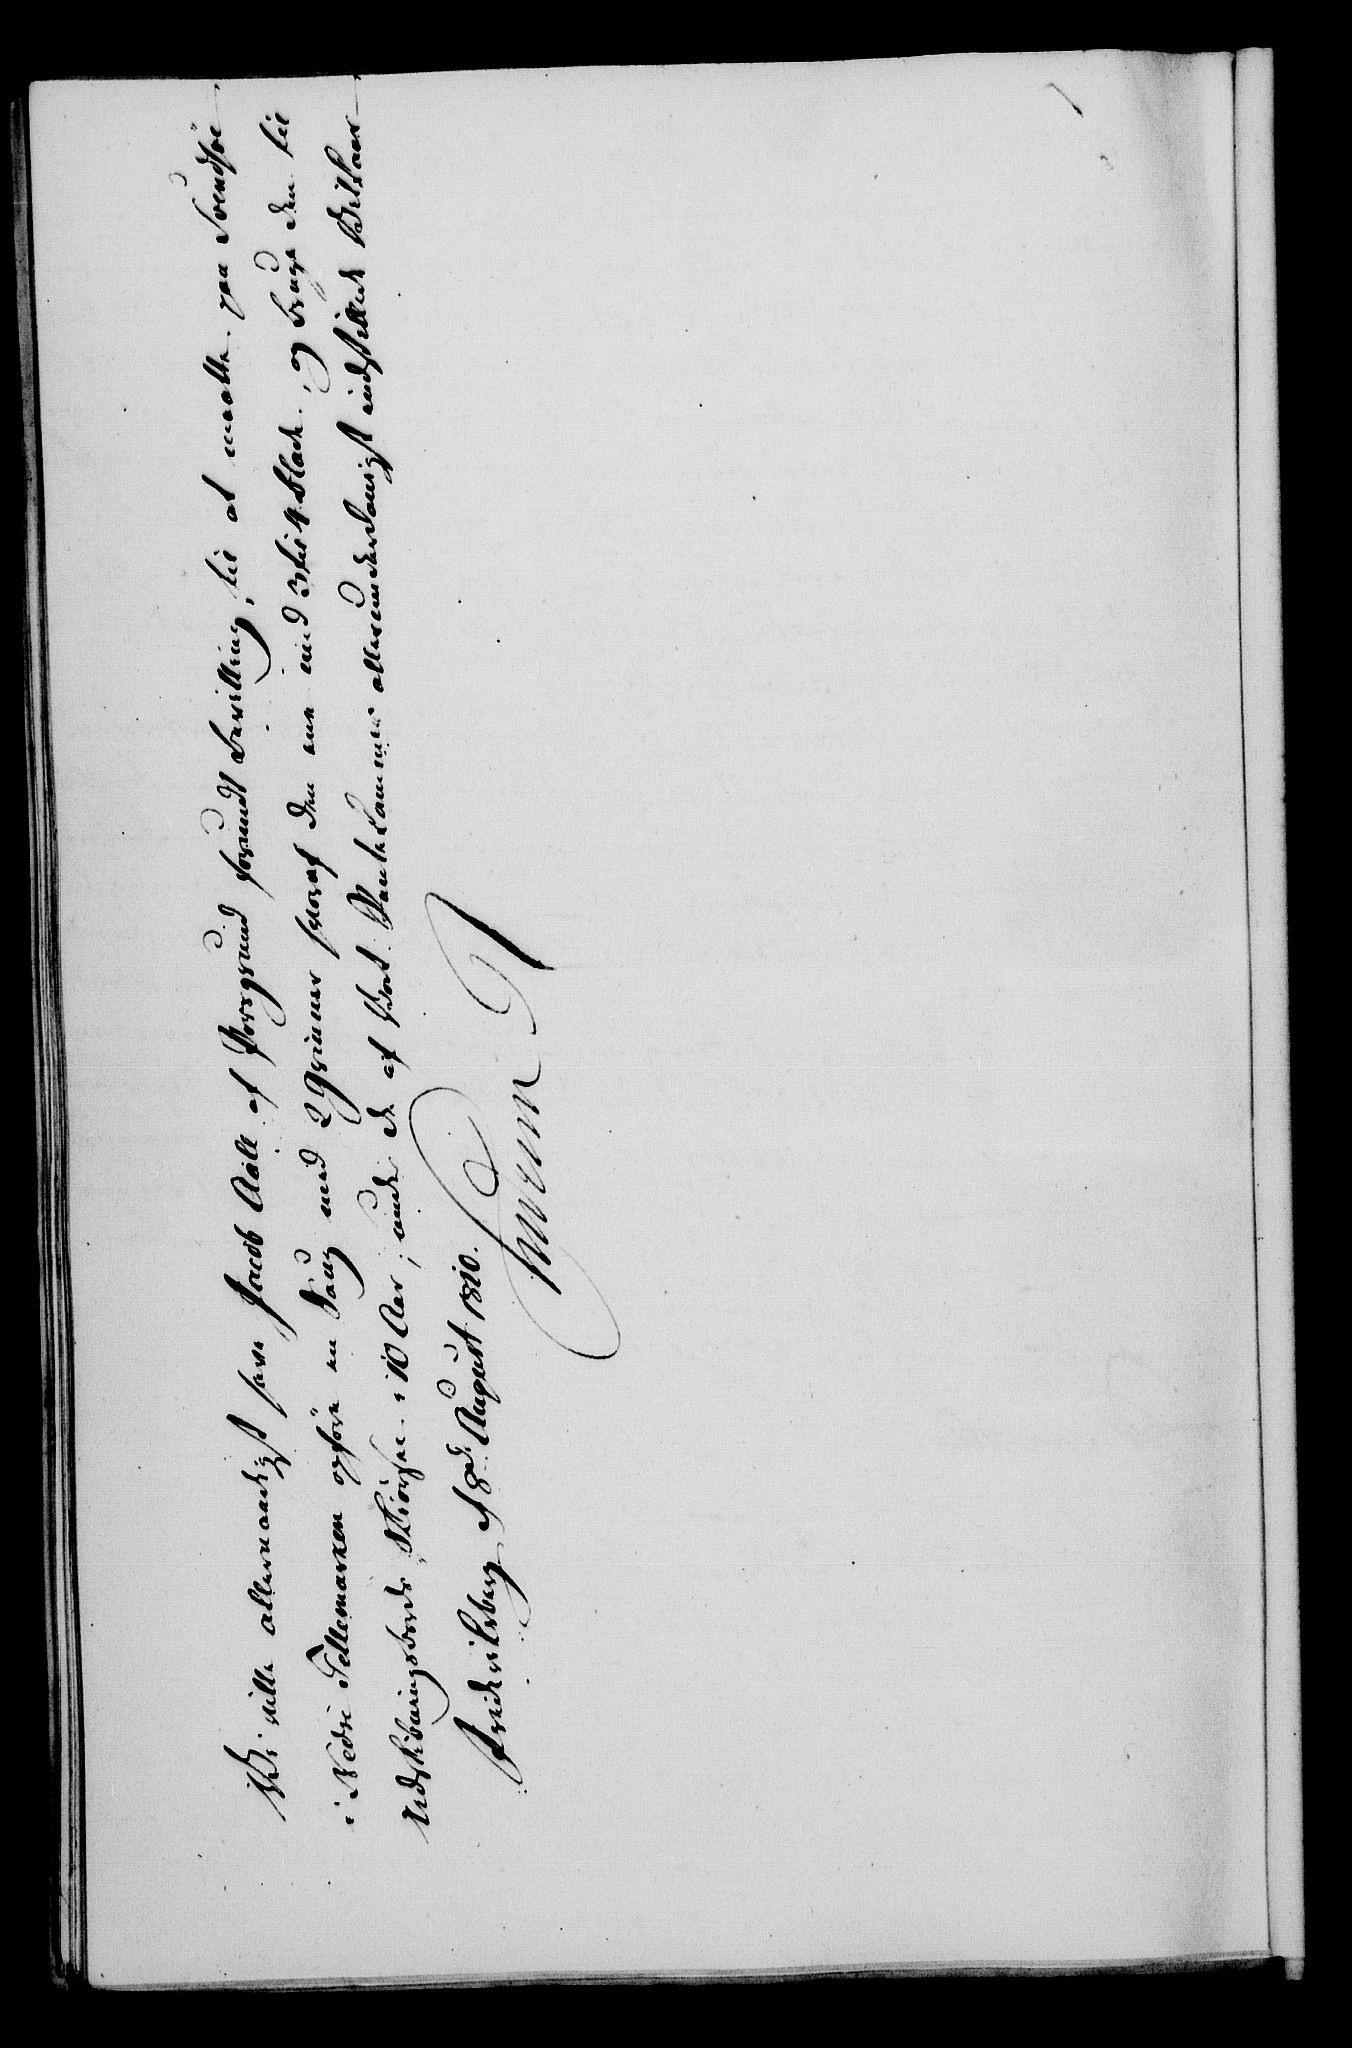 Vi ville allernaadigst have Jacob Aall af Porsgrund forundt Bevilling, til at maatte paa Svendsöe
i Nedre Tellemarken opföre en Saug med 2 Grinner hvoraf den ene med 3 til 4 Blade, og bruge den til
Udskibningsbords Skiörsel i 10 Aar, under de af Vort Rentekammer allerunderdanigst indstillede Vilkaar
Frideriksberg d 8de August 1810.
Frederik R